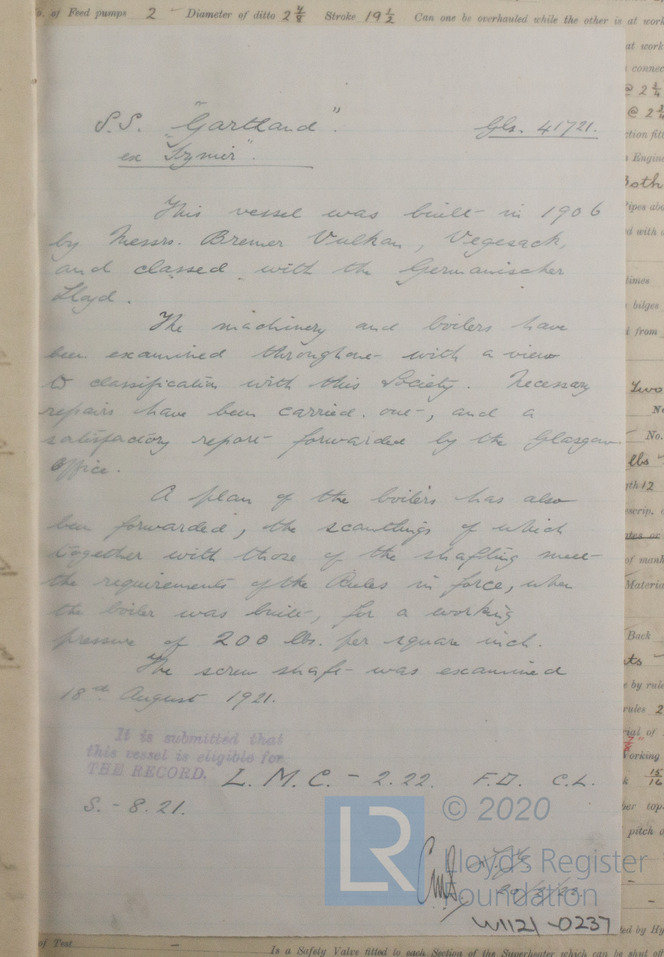 of Feed pumps 2 Diameter of ditto 2 4/8 Stroke 19 1/2 Can one be overhauled while the other is at work
S.S. "Gartland". Gls. 41721.
ex
This vessel was built in 1906
by Messrs. Bremer Vulkan, Vegesack,
and classed with the Germanischer
Lloyd.
The machinery and boilers have
been examined throughout with a view
to classification with this Society. Necessary
repairs have been carried out, and a
satisfactory report forwarded by the Glasgow
Office.
A plan of the boilers has also
been forwarded, the scantlings of which
together with those of the shafting meet
the requirements of the Rules in force, when
the boiler was built, for a working
pressure of 200 lbs. per square inch.
The screw shaft was examined
18th August 1921.
It is submitted that
this vessel is eligible for
THE RECORD. L.M.C. - 2.22. F.D. C.L.
S. - 8.21.
LR © 2020
Lloyd's Register
Foundation
W1121-0237
of Test
Is a Safety Valve fitted to each Section of the Superheater which can be shut off